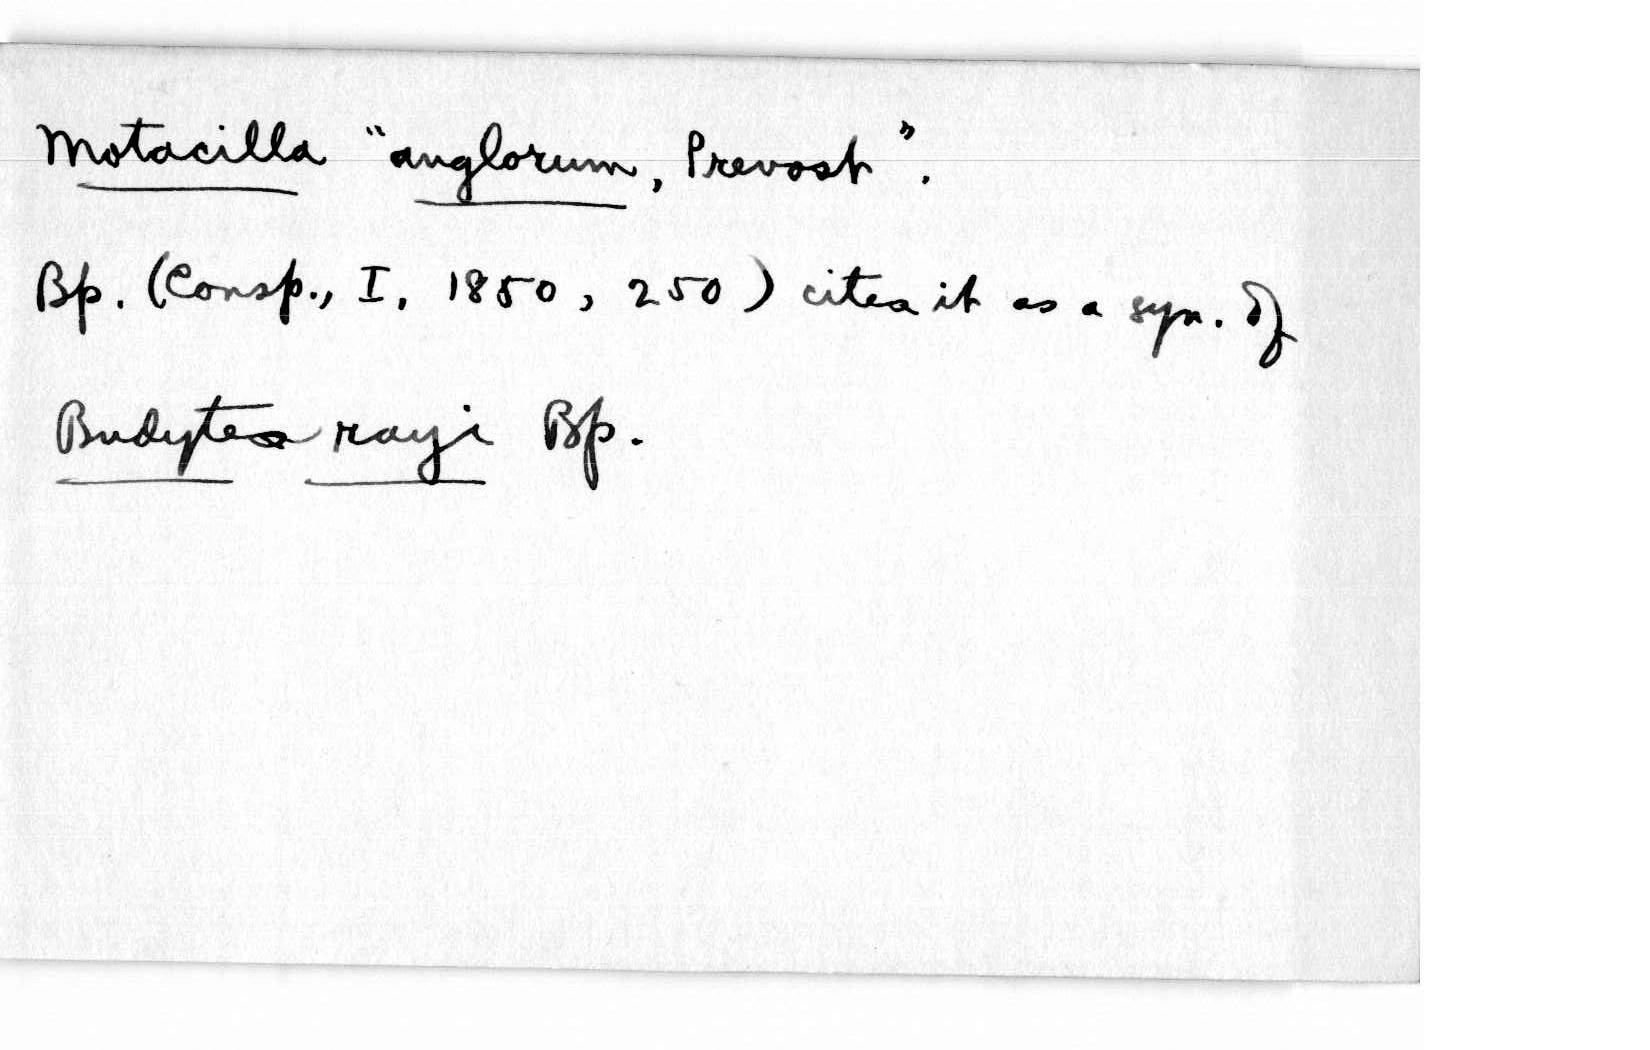 Motacilla "anglorum, Prevost".
Bp. (Consp., I, 1850, 250) cites it as a syn. of
Budytes rayi Bp.